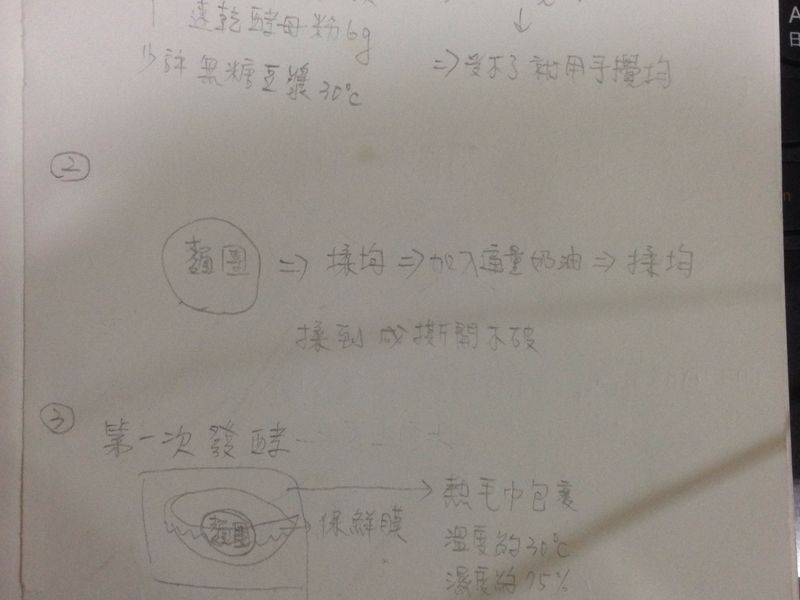 速乾酵母粉6g
許黑糖豆漿30℃
↓
⇒受不了就用手攪均
②
麵團 ⇒ 揉均 ⇒加入適量奶油⇒ 揉均
揉到成撕開不破
③
第一次發酵
麵團
保鮮膜
熱毛巾包裹
溫度約30℃
濕度約75%
A
日